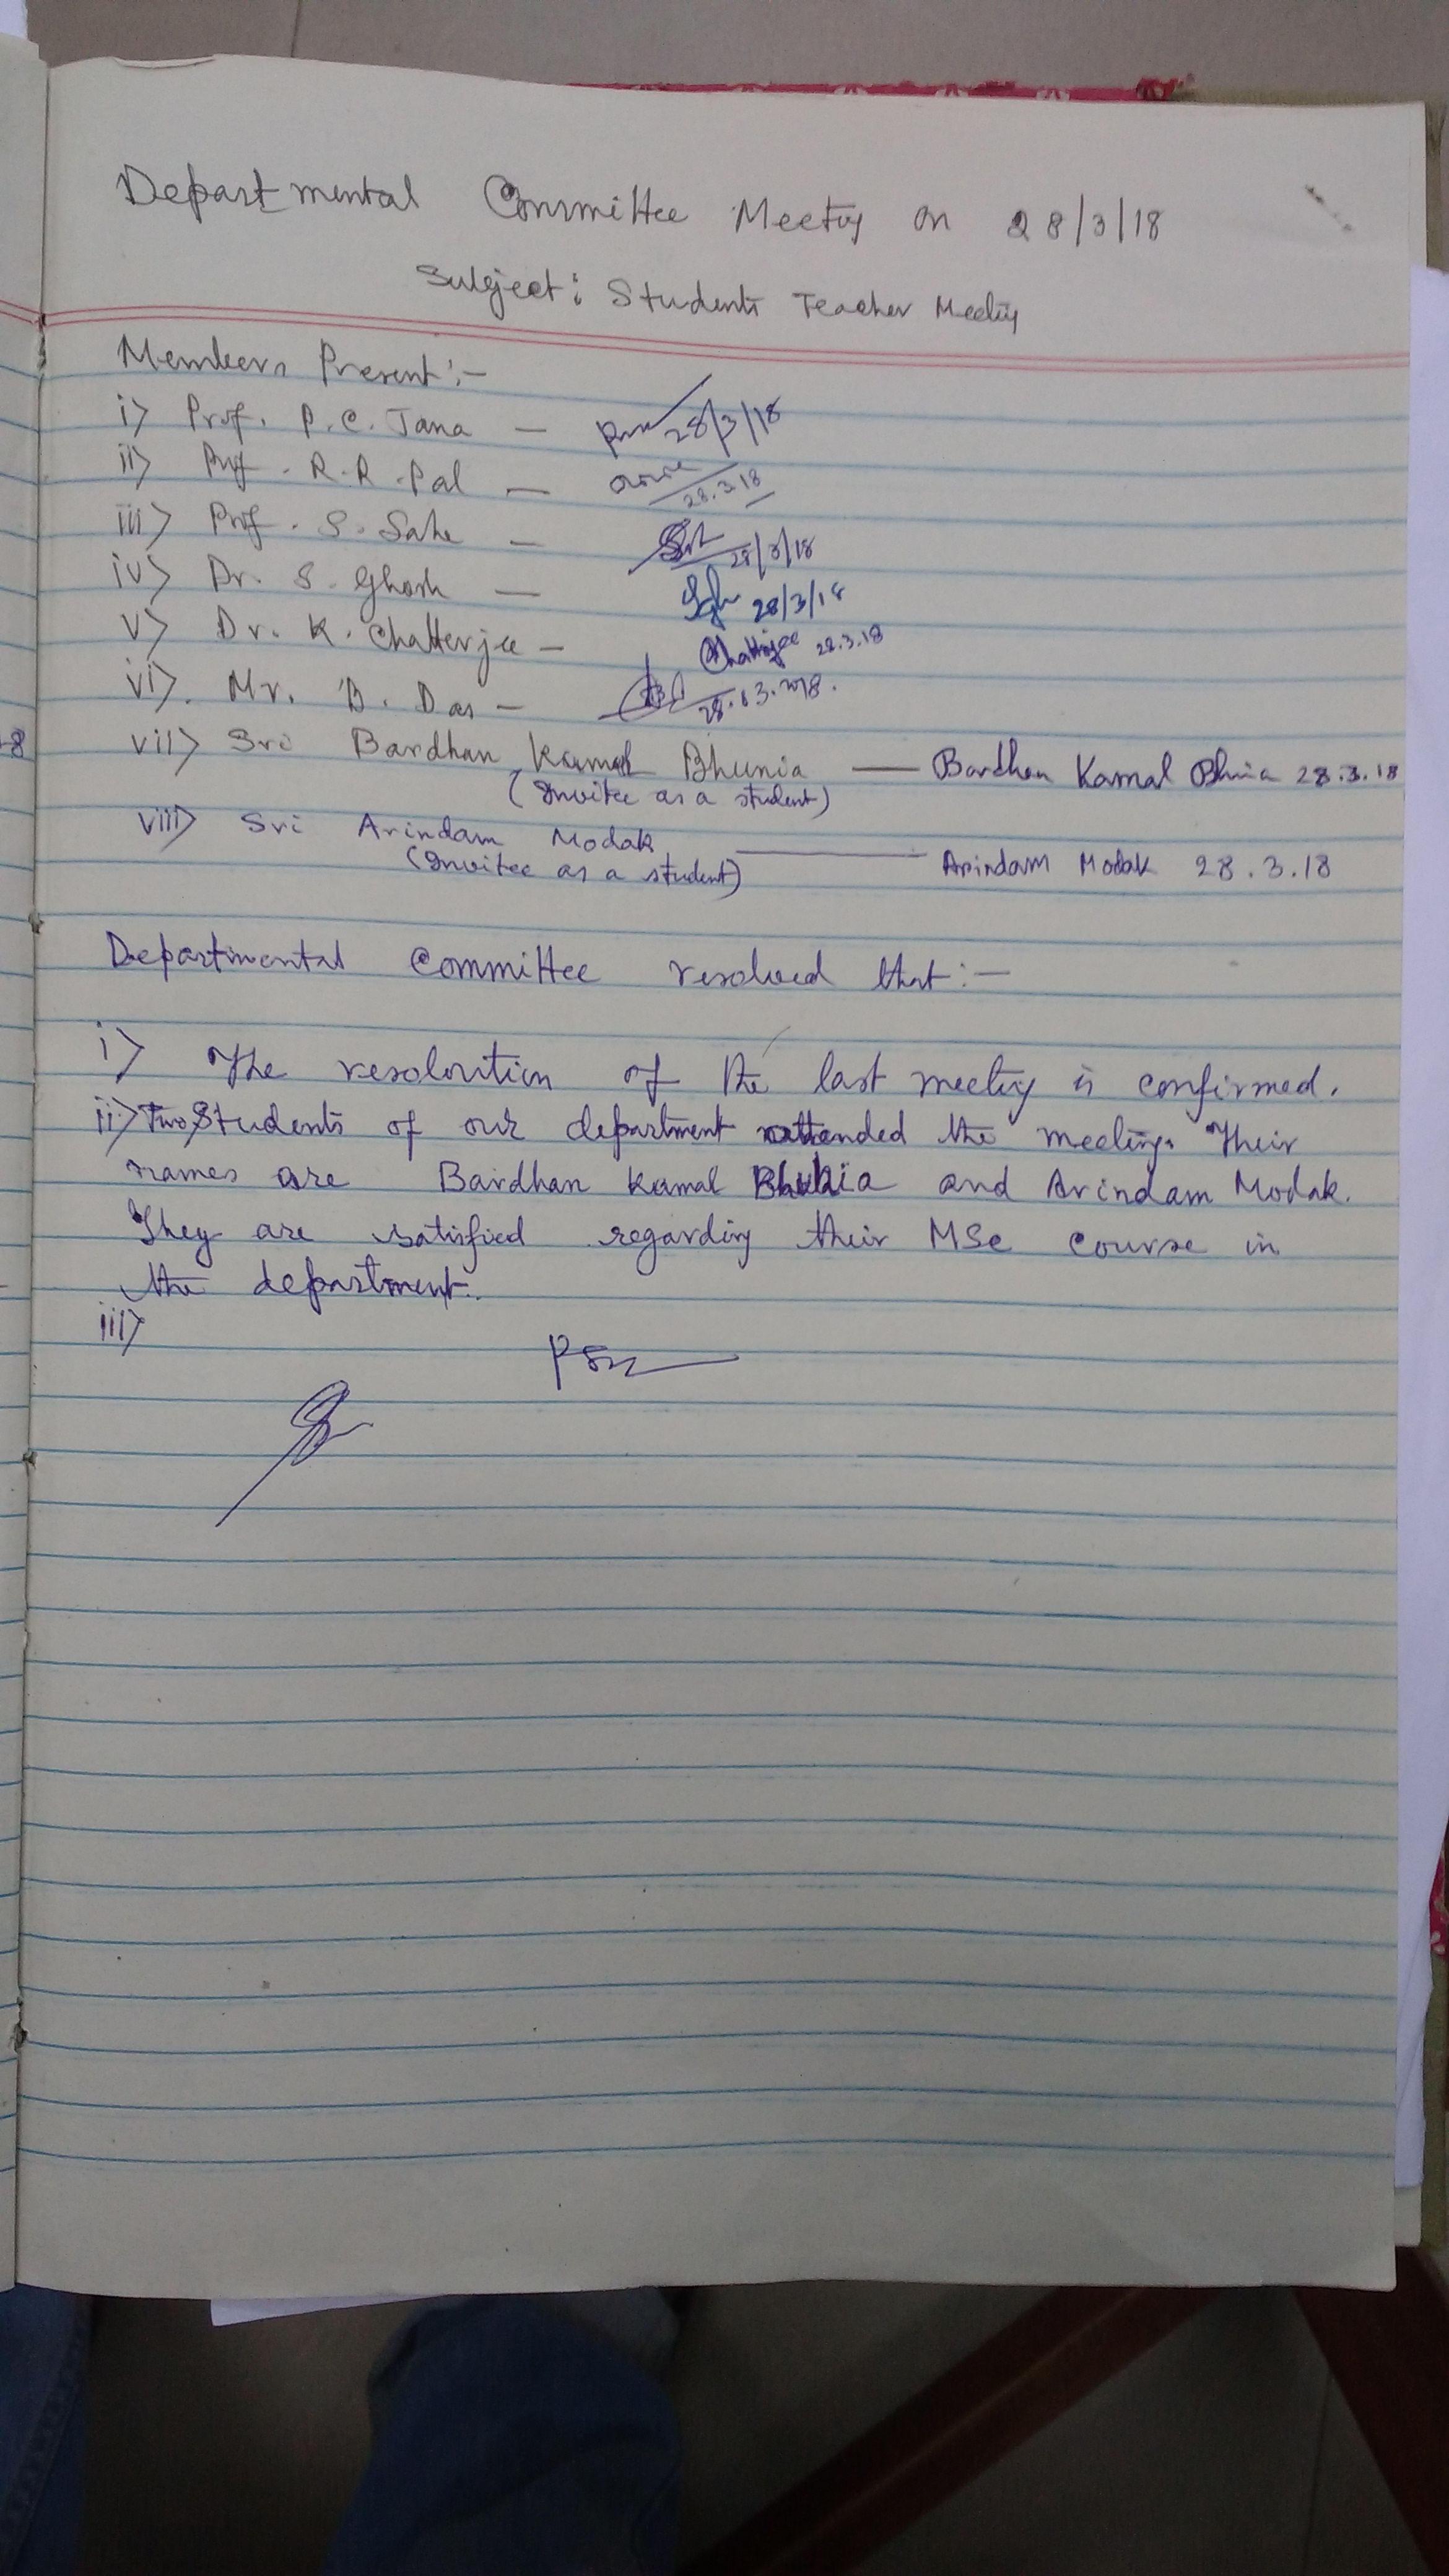 Departmental Committee Meeting on 28/3/18
Subject: Students Teacher Meeting
Members Present:-
i) Prof. P.C. Jana — 28/3/18
ii) Prof. R.R. Pal — 28.3.18
iii) Prof. S. Saha — 28/3/18
iv) Dr. S. Ghosh — 28/3/18
v) Dr. K. Chatterjee — Chatterjee 28.3.18
vi) Mr. B. Das — 28.03.2018.
vii) Sri Bardhan Kamal Bhunia — Bardhan Kamal Bhunia 28.3.18
(Invitee as a student)
viii) Sri Arindam Modak — Arindam Modak 28.3.18
(Invitee as a student)
Departmental Committee resolved that:-
i) The resoloution of the last meeting is confirmed.
ii) Two Students of our department attended the meeting. Their
names are Bardhan Kamal Bhunia and Arindam Modak.
They are satisfied regarding their MSc course in
the department.
iii)